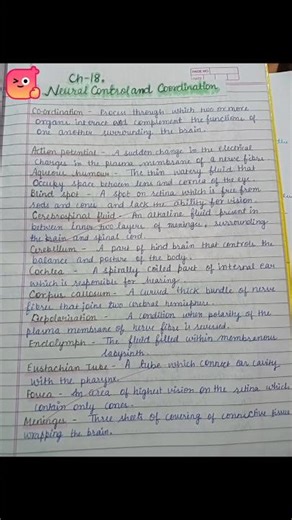 Ch-18.
Neural Control and Coordination
Coordination - Process through which two or more
organs interact and complement the functions of
one another surrounding the brain.
Action potential - A sudden change in the electrical
charges in the plasma membrane of a nerve fibre
Aqueous humour - The thin watery fluids that
Occupy space between lens and cornea of the eye.
Blind spot - A spot on retina which is free from
rods and cones and lack the ability for vision.
Cerebrospinal fluid - An alkaline fluid present in
between inner two layers of meninges, surrounding
the brain and spinal cord.
Cerebellum - A part of hind brain that controls the
balance and posture of the body.
Cochlea - A spirally coiled part of internal ear
which is responsible for hearing.
Corpus callosum - A curved thick bundle of nerve
fibres that join two cerebral hemisphere.
Depolarisation - A condition when polarity of the
plasma membrane of nerve fibre is reversed.
Endolymph - The fluid filled within membranous
labyrinth.
Eustachian Tube - A tube which connect ear cavity
With the pharynx.
Fovea - An area of highest vision on the retina which
contain only cones.
Meninges - Three sheets of covering of connective tissue
wrapping the brain.